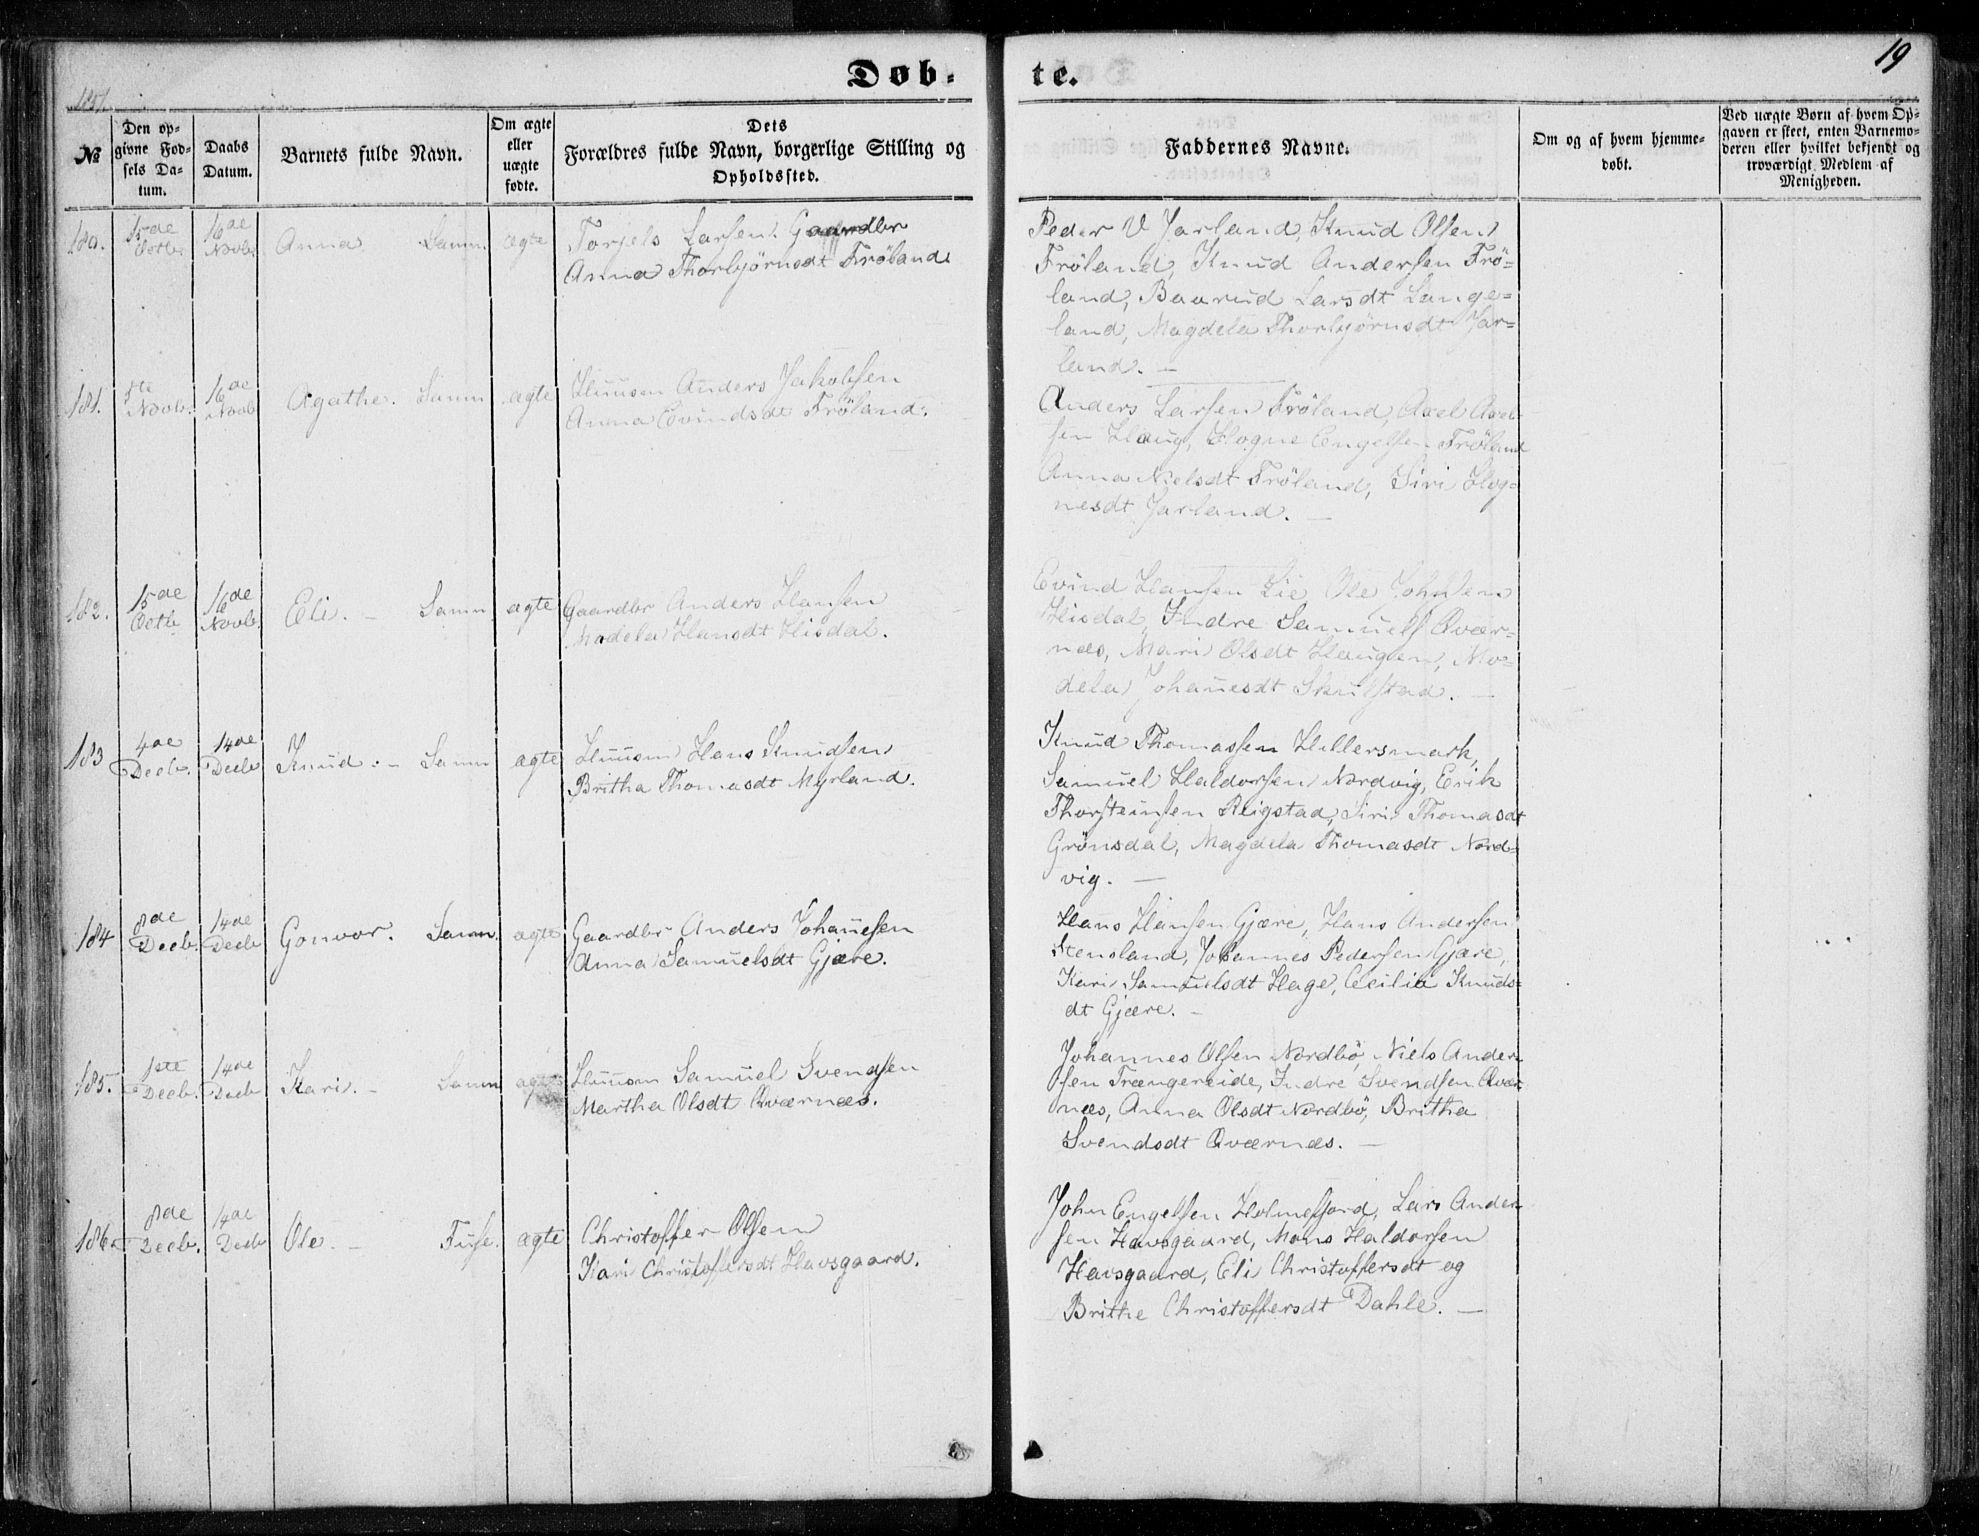 Døb-te.
19
1851.
№
Den opgivne Fødsels Datum.
Daabs Datum.
Barnets fulde Navn.
Om ægte eller uægte fødte.
Dets Forældres fulde Navn, borgerlige Stilling og Opholdssted.
Faddernes Navne.
Om og af hvem hjemmedøbt.
Ved uægte Børn af hvem Opgaven er skeet, enten Barnemoderen eller hvilket bekjendt og troværdigt Medlem af Menigheden.
180. 15de Octb. 16de Novb. Anna Samn. ægte
Torjels Larsen Gaardbr
Anna Thorbjörnsdt Fröland
Peder V Jarland, Knud Olsen
Fröland, Knud Andersen Frö=
land, Baarud Larsdt Lange=
land, Magdela Thorbjörnsdt Jar=
land. —
181. Novb. 16de Novb Agathe. Samn ægte
Huusm Anders Jakobsen
Anna Evindsdt Fröland.
Anders Larsen Fröland, Axel Axel=
sen Haug, Hogne Engelsen Fröland
Anna Nielsdt Fröland, Siri Hog=
nesdt Jarland. —
182. 15de Octb 16de Novb. Eli. — Samn ægte
Gaardbr Anders Hansen
Madela Hansdt Hisdal.
Evind Hansen Lie Ole Johnsen
Hisdal, Indre Samuels Qvær=
næs, Mari Olsdt Haugen, Mo=
dela Johanesdt Skulstad. —
183 4de Decb. 14de Decb Knud. — Samn ægte
Huusm Hans Knudsen
Britha Thomasdt Myrland.
Knud Thomassen Hillersmark,
Samuel Haldorsen Nordvig, Erik
Thorsteinsen Reigstad, Siri Thomasdt
Grönsdal, Magdela Thomasdt Nord=
vig. —
184 8de Decb. 14de Decb Gonvor. Samn. ægte
Gaardbr Anders Johanesen
Anna Samuelsdt Gjære.
Hans Hansen Gjære, Hans Andersen
Stensland, Johannes Pedersen Gjære,
Kari Samuelsdt Hage, Cecilia Knuds=
dt Gjære. —
185. 1ste Decb. 14de Decb Kari. — Samn ægte
Huusm Samuel Svendsen
Martha Olsdt Qværnæs.
Johannes Olsen Nordbö, Niels Ander=
sen Trængereide, Indre Svendsen Qvær=
næs, Anna Olsdt Nordbö, Britha
Svendsdt Qværnæs. —
186. 8de Decb. 14de Decb Ole. — Fuse. ægte
Christoffer Olsen
Kari Christoffersdt Havsgaard.
John Engelsen Holmefjord, Lars Ander=
sen Havsgaard, Mons Haldorsen
Havsgaard, Eli Christoffersdt og
Brithe Christoffersdt Dahle. —